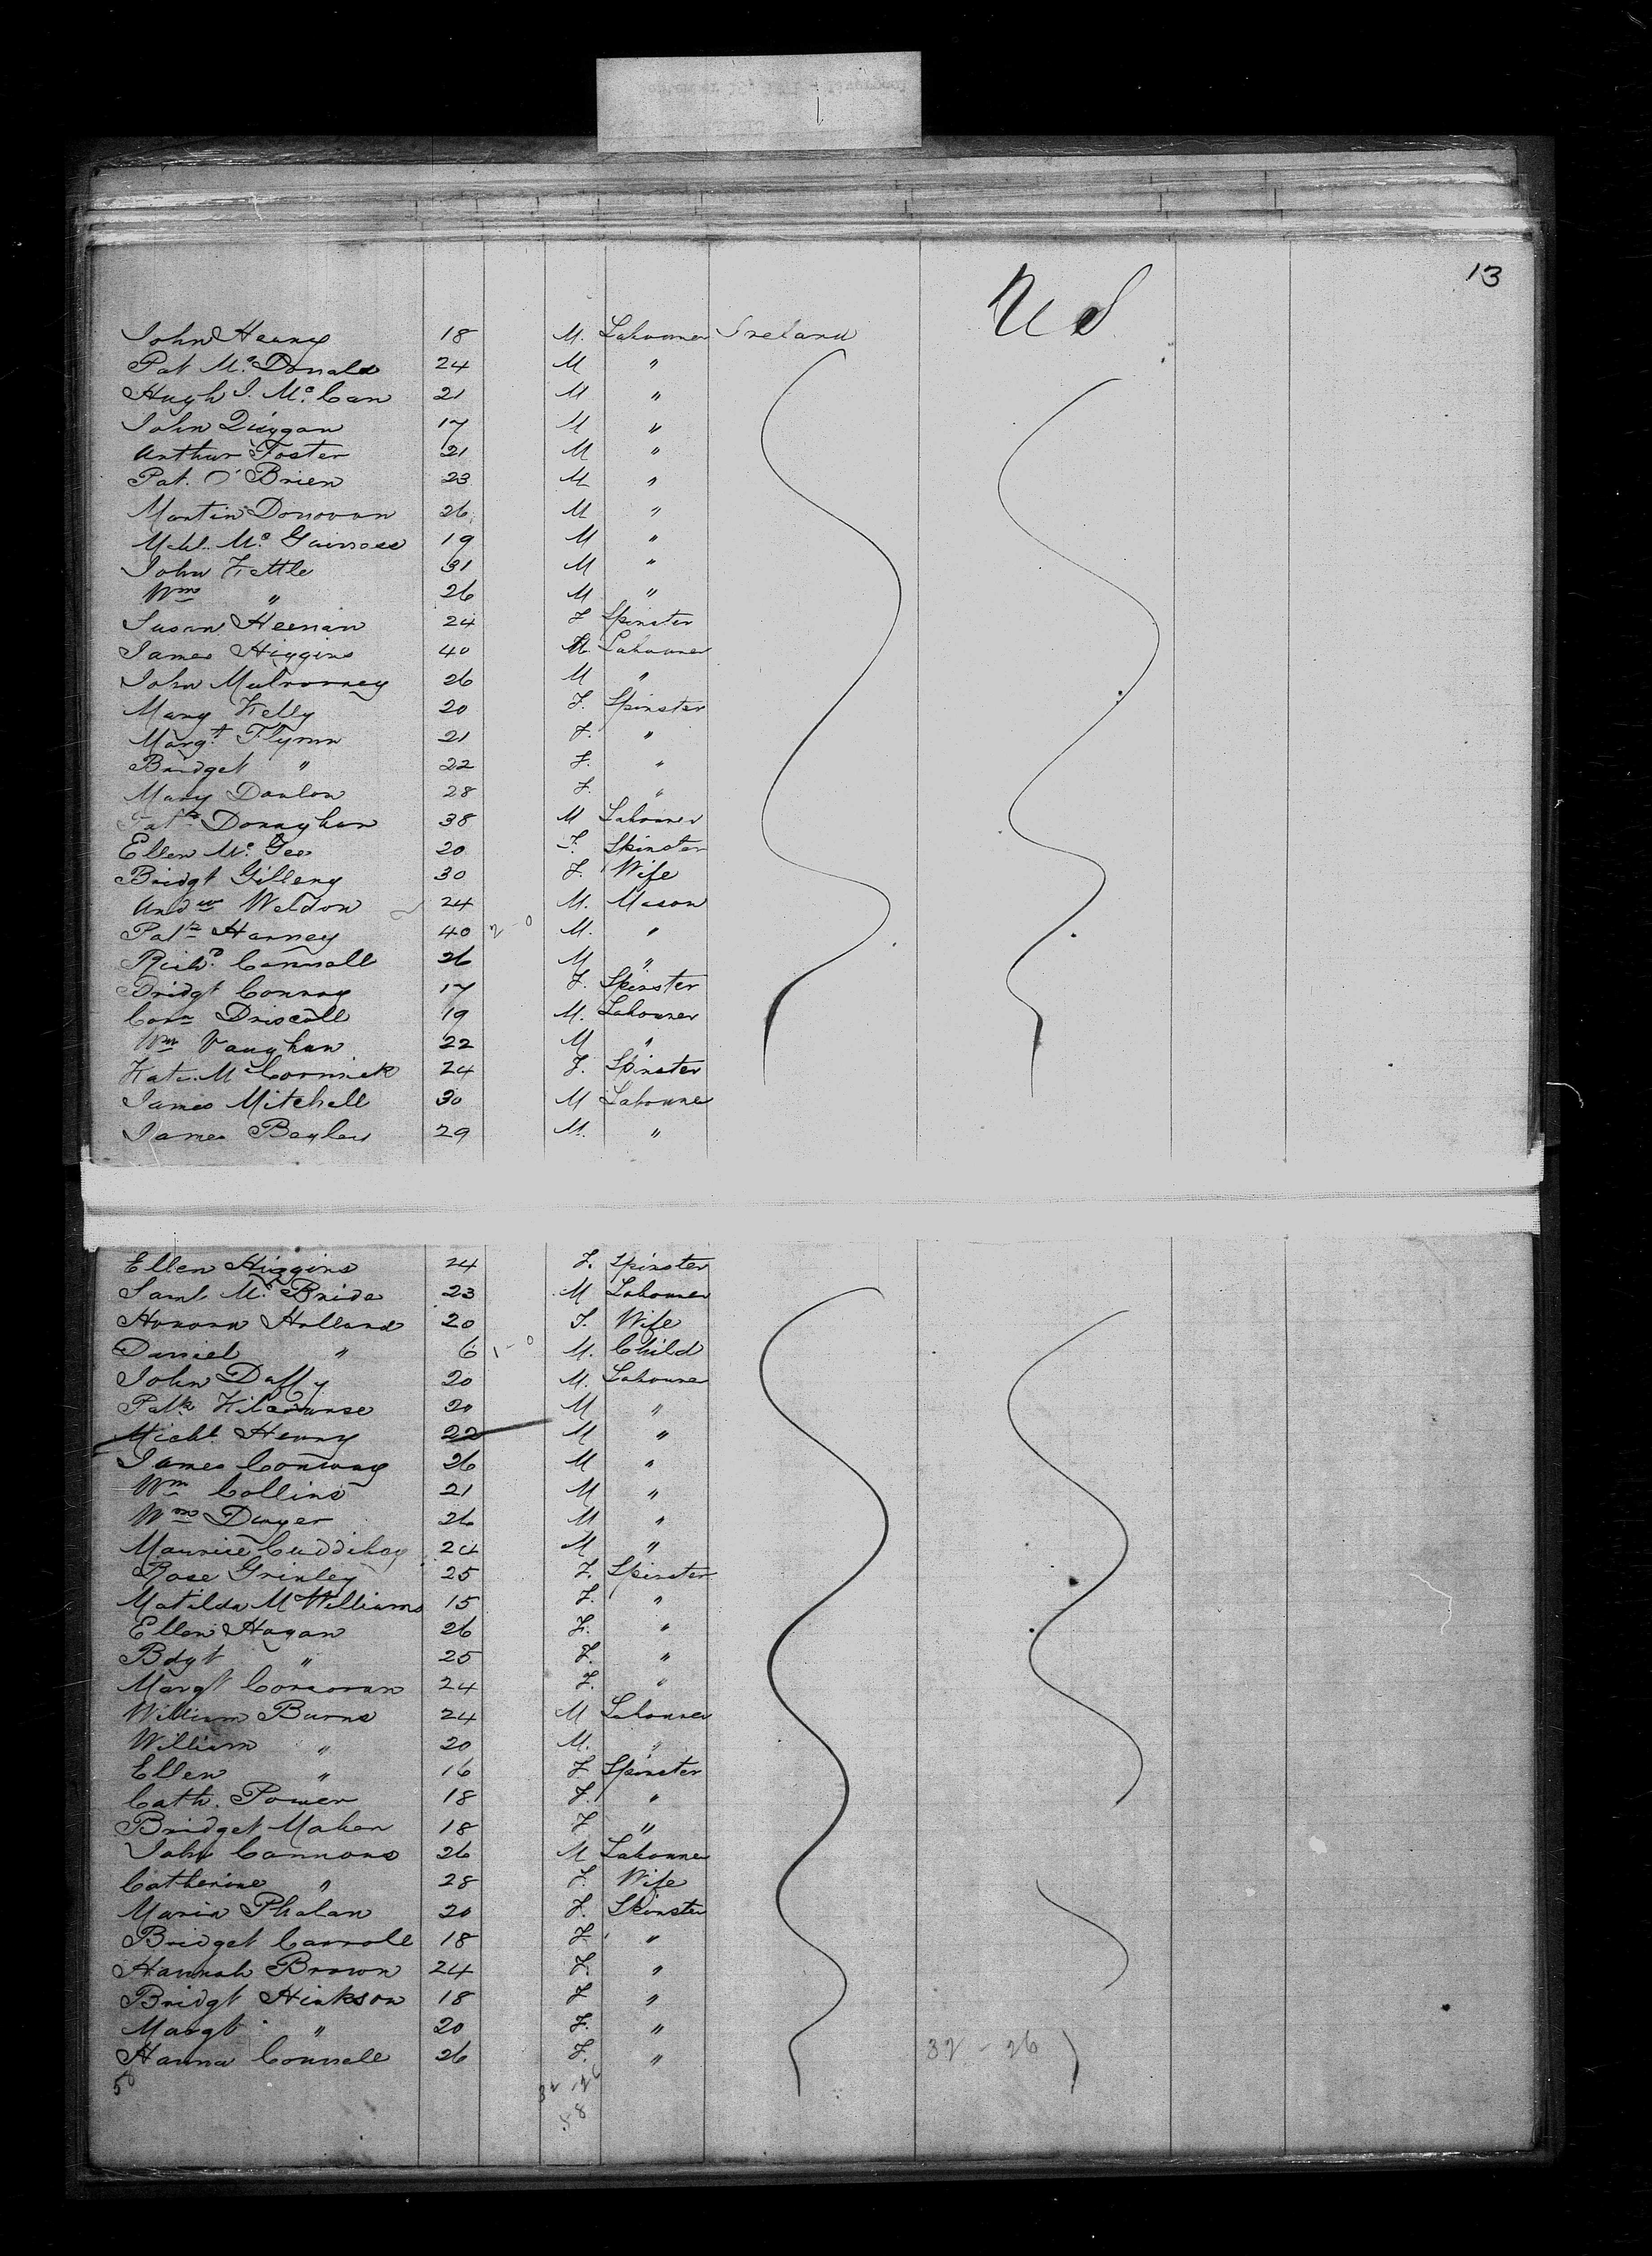 13
U S
John Heany 18 M. Labourer Ireland
Pat Mc. Donald 24 M "
Hugh J. Mc. Can 21 M "
John Quigan 17 M "
Arthur Foster 21 M "
Pat. O'Brien 23 M "
Martin Donovan 26 M "
Mchl. Mc. 19 M "
John Kettle 31 M "
Wm " 26 M "
Susan Heenan 24 F Spinster
James Higgins 40 M. Labourer
John Mulrooney 26 M "
Mary Kelly 20 F. Spinster
Margt. Flynn 21 F. "
Bridget " 22 F. "
Mary Donlon 28 F. "
Patk Donaghan 38 M Labourer
Ellen Mc. Gee 20 F. Spinster
Bridgt Gilleny 30 F. Wife
Andw Weldon 24 M. Mason
Patk Harney 40 2 - 0 M. "
Richd. Connell 26 M "
Bridgt Conroy 17 F. Spinster
Corn Driscoll 19 M. Labourer
Wm Vaughan 22 M "
Kate Mc Cormick 24 F. Spinster
James Mitchell 30 M Labourer
James Bayley 29 M. "
Ellen Higgins 24 F. Spinster
Saml Mc. Bride 23 M Labourer
Honora Holland 20 F. Wife
Daniel " 6 1 - 0 M. Child
John Duffy 20 M. Labourer
Patk 20 M "
Michl. Henry 22 M "
James Conway 26 M "
Wm Collins 21 M "
Wm Dwyer 26 M "
Maurice Cuddihay 24 M "
Rose Grinley 25 F. Spinster
Matilda McWilliams 15 F. "
Ellen Hagan 26 F. "
Bdgt " 25 F. "
Margt Corcoran 24 F. "
William Burns 24 M Labourer
William " 20 M. "
Ellen " 16 F Spinster
Cath. Power 18 F. "
Bridget Maher 18 F "
John Cannons 26 M Labourer
Catherine " 28 F. Wife
Maria Phalan 20 F. Spinster
Bridget Carroll 18 F. "
Hannah Brown 24 F. "
Bridgt Hinkson 18 F "
Margt " 20 F. "
Hanna Connell 26 F. "
32 - 26
58
32 26
58